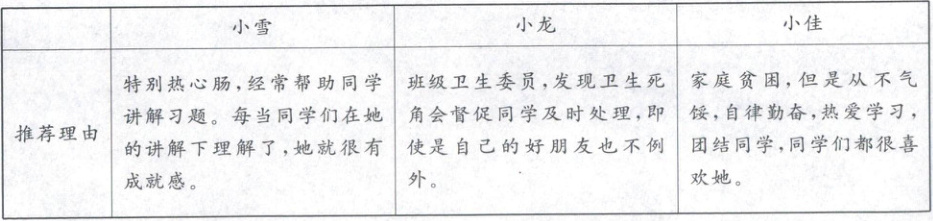 小雪 小龙 小佳
推荐理由
特别热心肠,经常帮助同学
讲解习题。每当同学们在她
的讲解下理解了,她就很有
成就感。
班级卫生委员,发现卫生死
角会督促同学及时处理,即
使是自己的好朋友也不例
外。
家庭贫困,但是从不气
馁,自律勤奋,热爱学习,
团结同学,同学们都很喜
欢她。